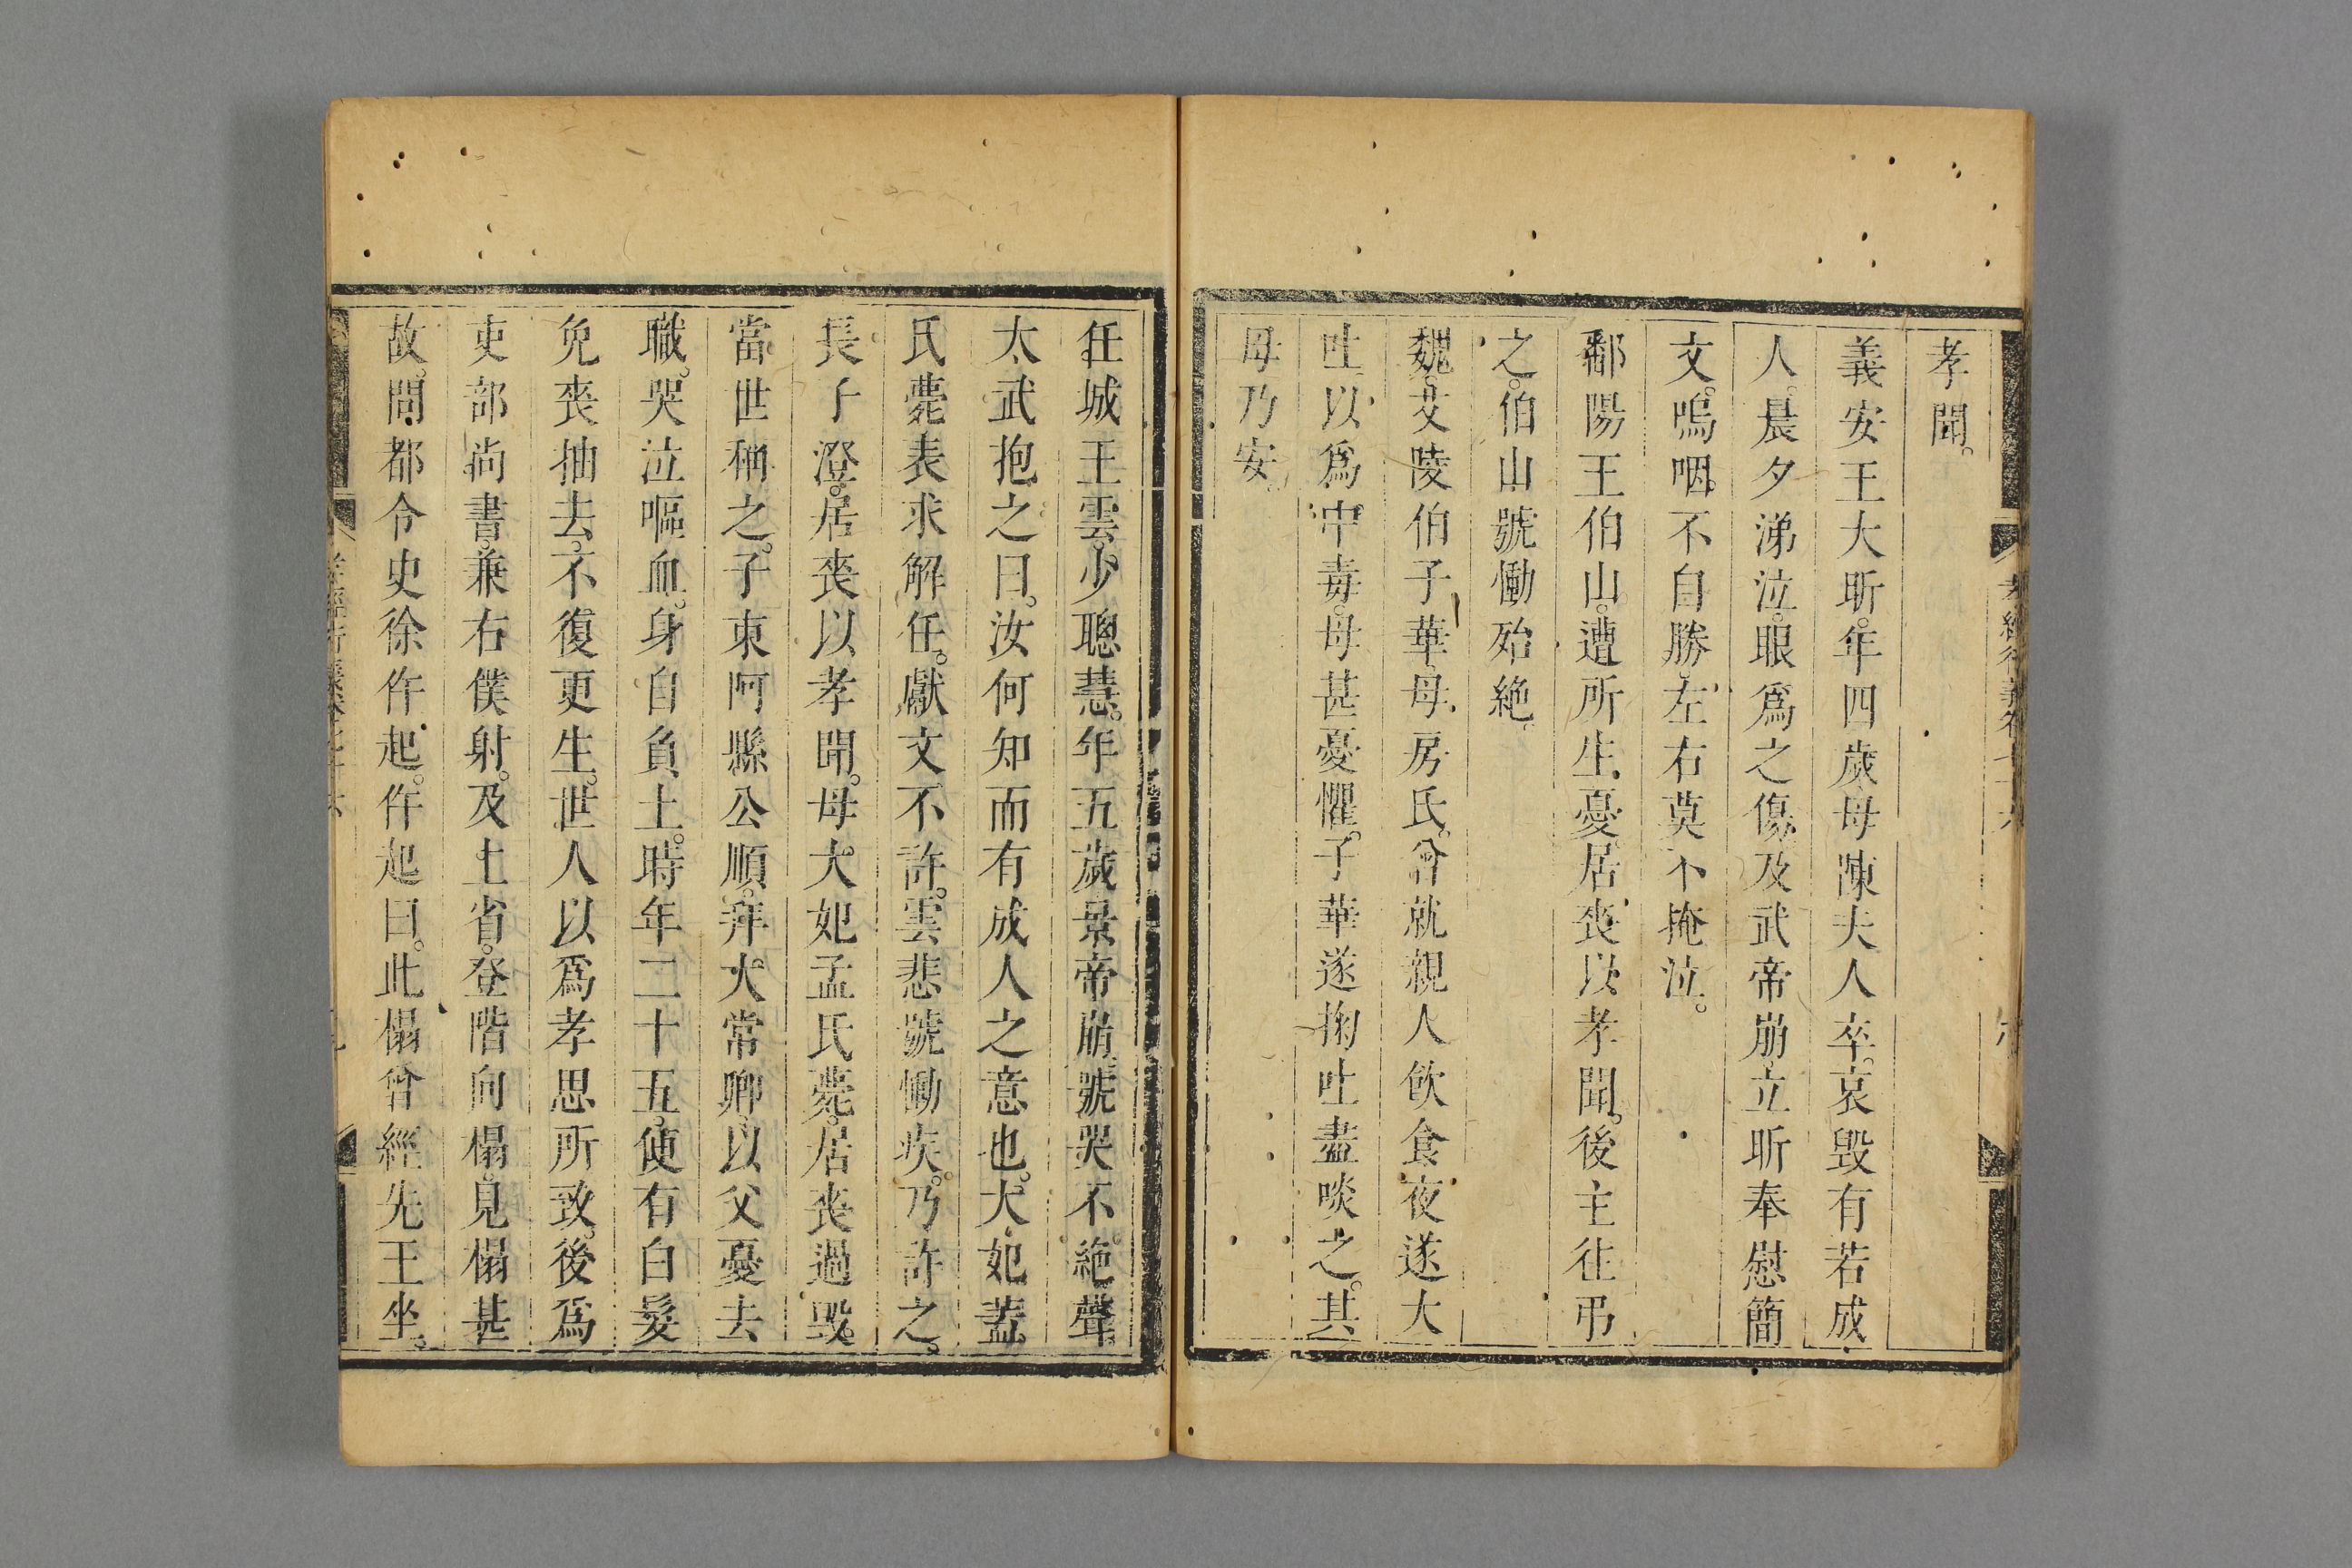 孝聞。
義安王大昕。年四歲母陳夫人卒。哀毀有若成
人。晨夕涕泣。眼爲之傷。及武帝崩。立昕奉慰簡
文。嗚咽不自勝。左右莫不掩泣。
鄱陽王伯山。遭所生憂。居喪以孝聞。後主徃弔
之。伯山號慟殆絶。
魏。艾陵伯子華。母房氏。曾就親人飲食。夜遂大
吐。以爲中毒。母甚憂懼。子華遂掬吐盡啖之。其
母乃安。
任城王雲。少聰慧。年五歲景帝崩。號哭不絶聲。
太武抱之曰。汝何知而有成人之意也。大妃蓋
氏薨。表求解任。獻文不許。雲悲號慟疾。乃許之。
長子澄。居喪以孝聞。母大妃孟氏薨。居喪過毀。
當世稱之。子東阿縣公順。拜大常卿。以父憂去
職。哭泣嘔血。身自負土。時年二十五。便有白髮
免喪抽去。不復更生。世人以爲孝思所致。後爲
吏部尚書。兼右僕射。及上省。登階向榻。見榻甚
故。問都令史徐仵起。仵起曰。此榻曾經先王坐。